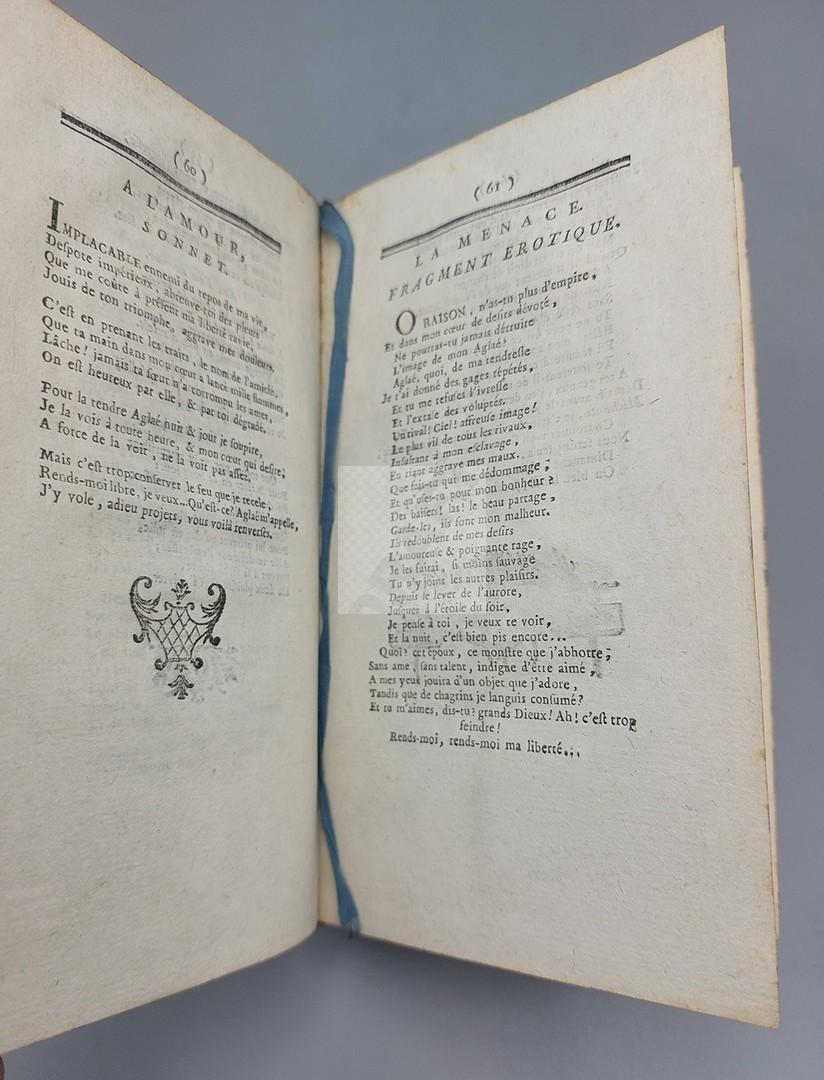 ( 60 )
A L'AMOUR,
SONNET.
IMPLACABLE ennemi du repos de ma vie,
Deſpote impérieux, abreuve-toi des pleurs
Que me coûte à préſent ma liberté ravie;
Jouis de ton triomphe, aggrave mes douleurs.
C'eſt en prenant les traits, le nom de l'amitié,
Que ta main dans mon cœur a lancé mille flammes,
Lâche! jamais ta ſœur n'a corrompu les ames,
On eſt heureux par elle, & par toi dégradé.
Pour la tendre Aglaé nuit & jour je ſoupire,
Je la vois à toute heure, & mon cœur qui deſire,
A force de la voir, ne la voit pas aſſez.
Mais c'eſt trop conſerver le feu que je recele,
Rends-moi libre, je veux...Qu'eſt-ce? Aglaé m'appelle,
J'y vole, adieu projets, vous voilà renverſés.
( 61 )
LA MENACE.
FRAGMENT EROTIQUE.
O RAISON, n'as-tu plus d'empire,
Et dans mon cœur de deſirs dévoté,
Ne pourras-tu jamais détruire
L'image de mon Aglaé?
Aglaé, quoi, de ma tendreſſe
Je t'ai donné des gages répétés,
Et tu me refuſes l'ivreſſe
Et l'extaſe des voluptés.
Un rival! Ciel! affreuſe image!
Le plus vil de tous les rivaux,
Inſultant à mon eſclavage,
En riant aggrave mes maux.
Que fais-tu qui me dédommage;
Et qu'oſes-tu pour mon bonheur?
Des baiſers! las! le beau partage,
Garde-les, ils font mon malheur.
Ils redoublent de mes deſirs
L'amoureuſe & poignante rage,
Je les fuirai, ſi moins ſauvage
Tu n'y joins les autres plaiſirs.
Depuis le lever de l'aurore,
Juſques à l'étoile du ſoir,
Je penſe à toi, je veux te voir,
Et la nuit, c'eſt bien pis encore...
Quoi? cet époux, ce monſtre que j'abhorre;
Sans ame, ſans talent, indigne d'être aimé,
A mes yeux jouira d'un objet que j'adore,
Tandis que de chagrins je languis conſumé?
Et tu m'aimes, dis-tu? grands Dieux! Ah! c'eſt trop
feindre!
Rends-moi, rends-moi ma liberté...